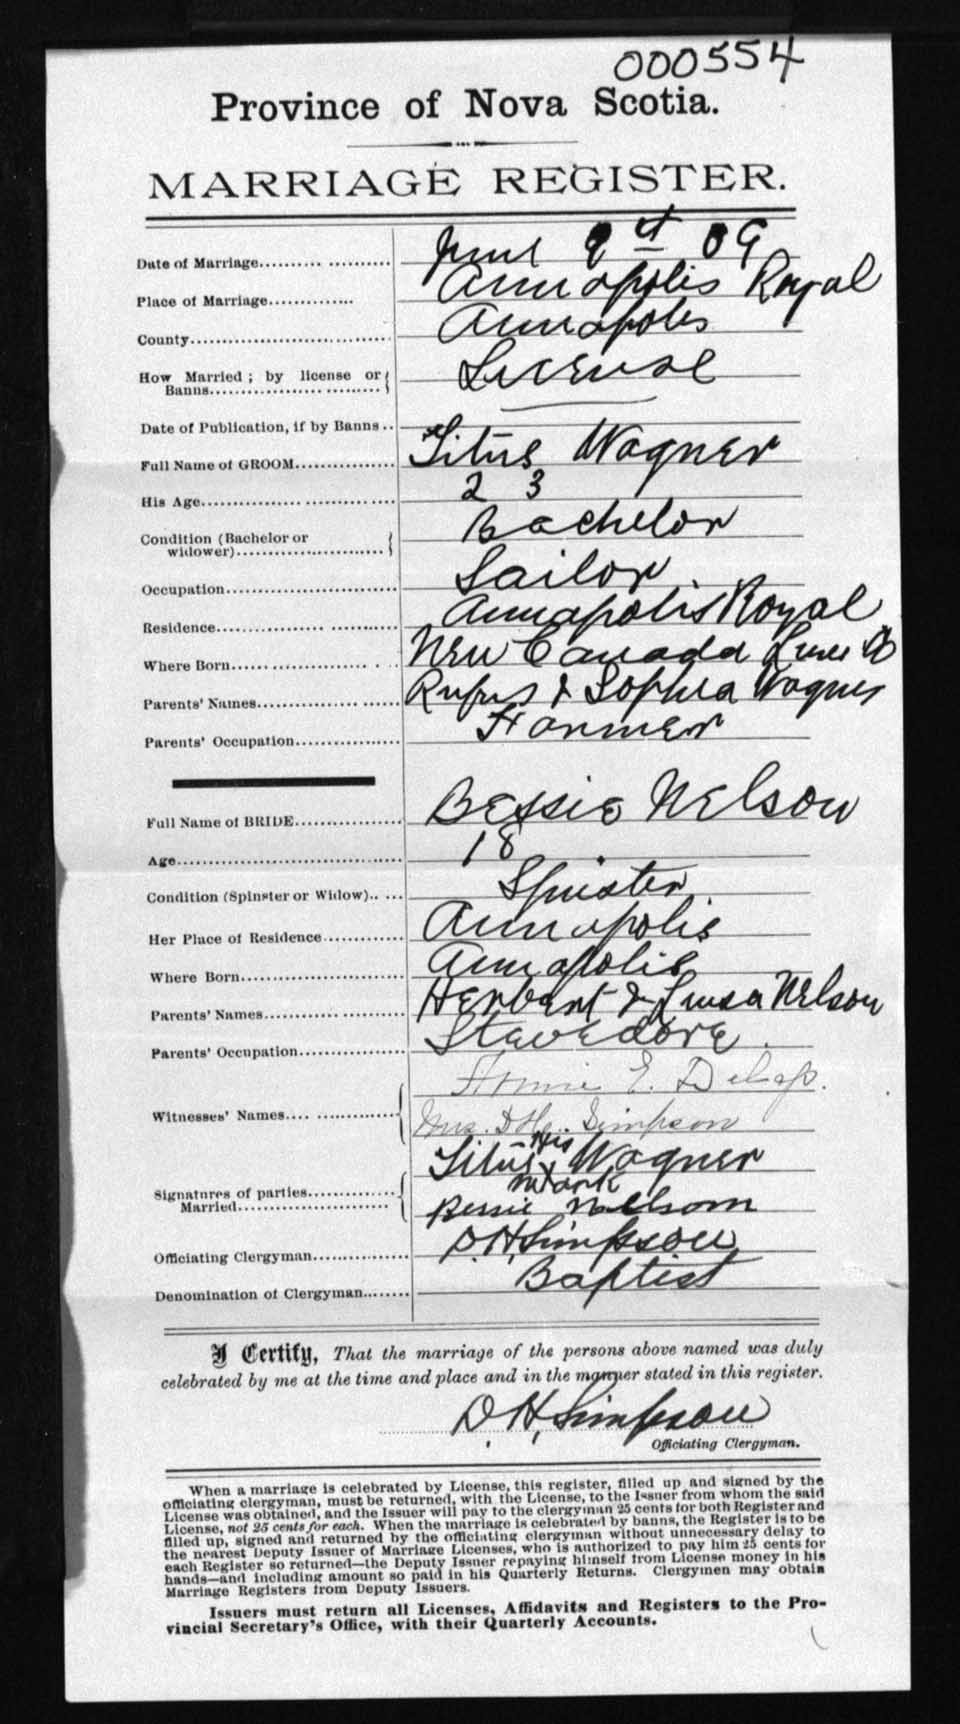 000554
Province of Nova Scotia.
MARRIAGE REGISTER.
Date of Marriage.......... June 09
Place of Marriage............. Annapolis Royal
County.................................. Annapolis
How Married ; by license or License
Banns..............................
Date of Publication, if by Banns ..
Full Name of GROOM............... Titus Wagner
His Age.................................. 23
Condition (Bachelor or Bachelor
widower).........................
Occupation............................. Sailor
Residence............................... Annapolis Royal
Where Born........................... New Canada Lune Co
Parents' Names....................... Rufus & Sophia Wagner
Parents' Occupation................ Farmer
Full Name of BRIDE................ Bessie Nelson
Age....................................... 18
Condition (Spinster or Widow)..... Spinster
Her Place of Residence............ Annapolis
Where Born........................... Annapolis
Parents' Names....................... Herbert & Louisa Nelson
Parents' Occupation................ Stevedore
E. Delap.
Witnesses' Names.... .............. Mrs. D. H. Simpson
Titus His Wagner
Signatures of parties............... X mark
Married.......................... Bessie Nelson
Officiating Clergyman............... D. H. Simpson
Denomination of Clergyman........ Baptist
I Certify, That the marriage of the persons above named was duly
celebrated by me at the time and place and in the manner stated in this register.
D. H. Simpson
Officiating Clergyman.
When a marriage is celebrated by License, this register, filled up and signed by the
officiating clergyman, must be returned, with the License, to the Issuer from whom the said
License was obtained, and the Issuer will pay to the clergyman 25 cents for both Register and
License, not 25 cents for each. When the marriage is celebrated by banns, the Register is to be
filled up, signed and returned by the officiating clergyman without unnecessary delay to
the nearest Deputy Issuer of Marriage Licenses, who is authorized to pay him 25 cents for
each Register so returned—the Deputy Issuer repaying himself from License money in his
hands—and including amount so paid in his Quarterly Returns. Clergymen may obtain
Marriage Registers from Deputy Issuers.
Issuers must return all Licenses, Affidavits and Registers to the Pro-
vincial Secretary's Office, with their Quarterly Accounts.